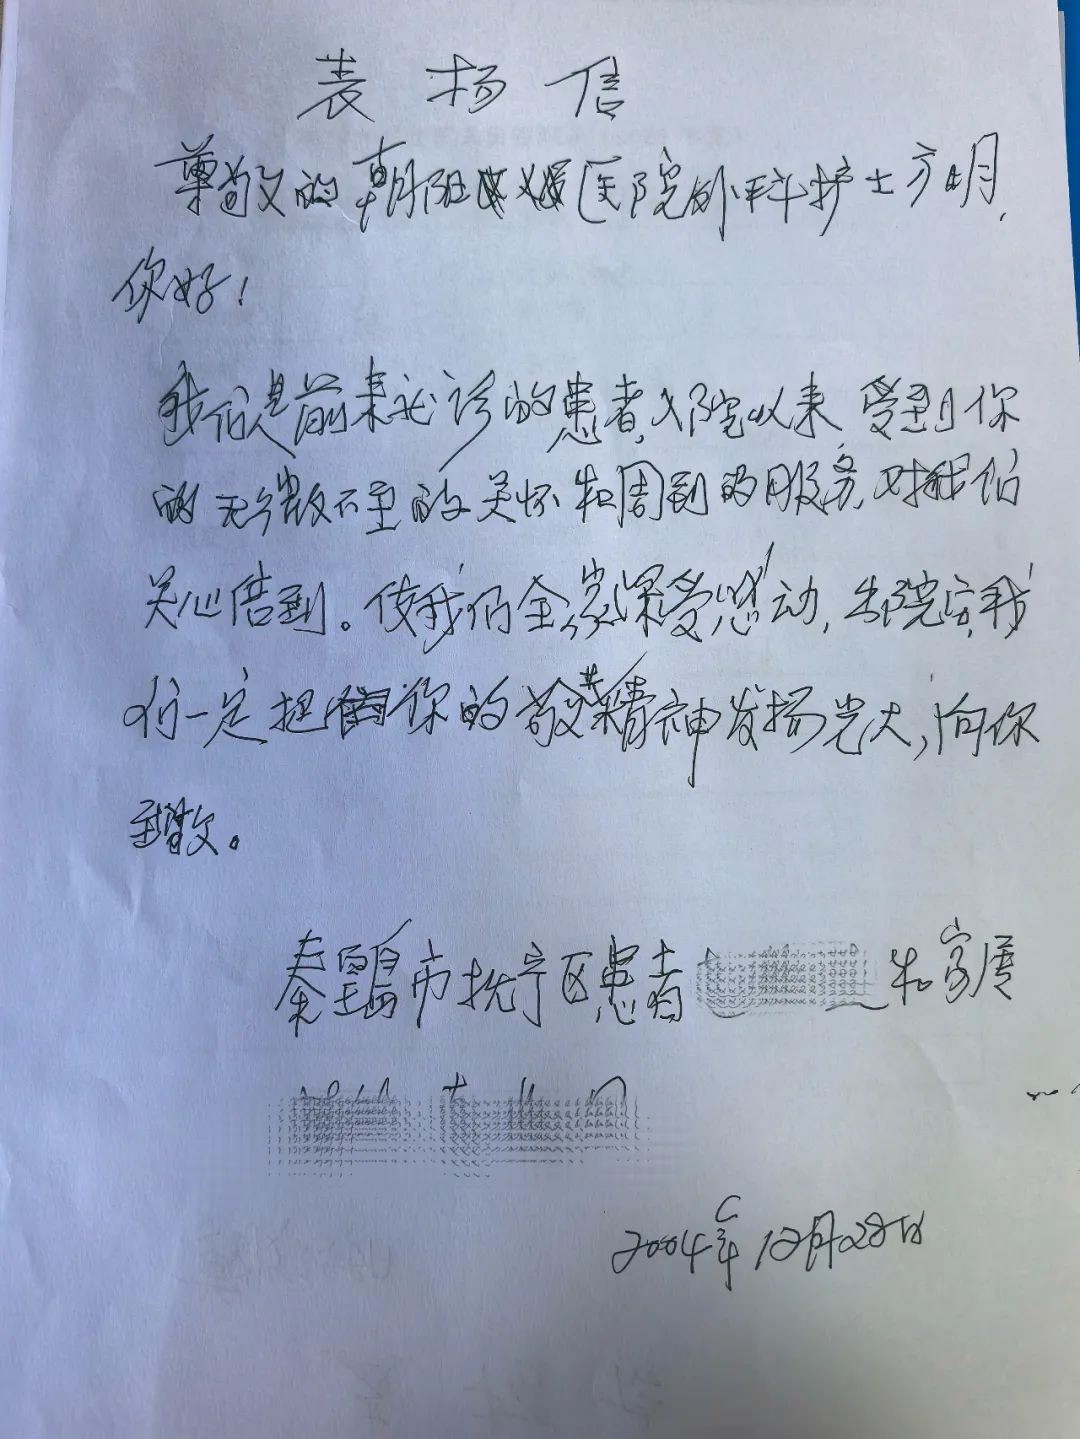 表扬信
尊敬的朝阳医院外科护士方明,
你好!
我们是前来必诊的患者,入院以来,受到你
的无微不至的关怀和周到的服务,对我们
关心倍到。使我们全家深受感动,出院后,我
们一定把你的敬业精神发扬光大,向你
致敬。
秦皇岛市抚宁区患者 和家属
2004年12月28日